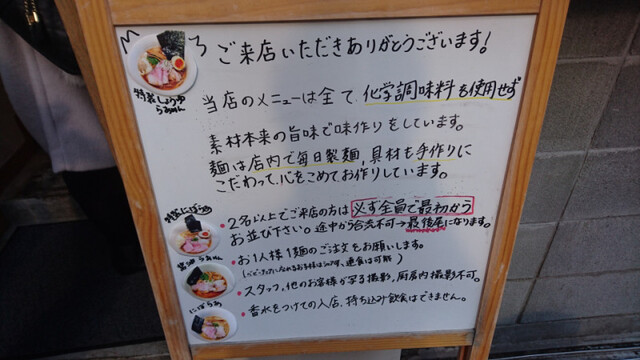 ご来店いただきありがとうございます!
特製しょうゆ
らぁめん
当店のメニューは全て、化学調味料を使用せず
素材本来の旨味で味作りをしています。
麺は店内で毎日製麺、具材も手作りに
こだわって、心をこめてお作りしています。
特製にぼらぁめ
・2名以上でご来店の方は必ず全員で最初から
お並び下さい。途中から合流不可→最後尾になります。
・お1人様1麺のご注文をお願いします。
らぁめん
・スタッフ、他のお客様が写る撮影、厨房内撮影不可。
にぼらぁめ
・香水をつけての入店、持ち込み飲食はできません。